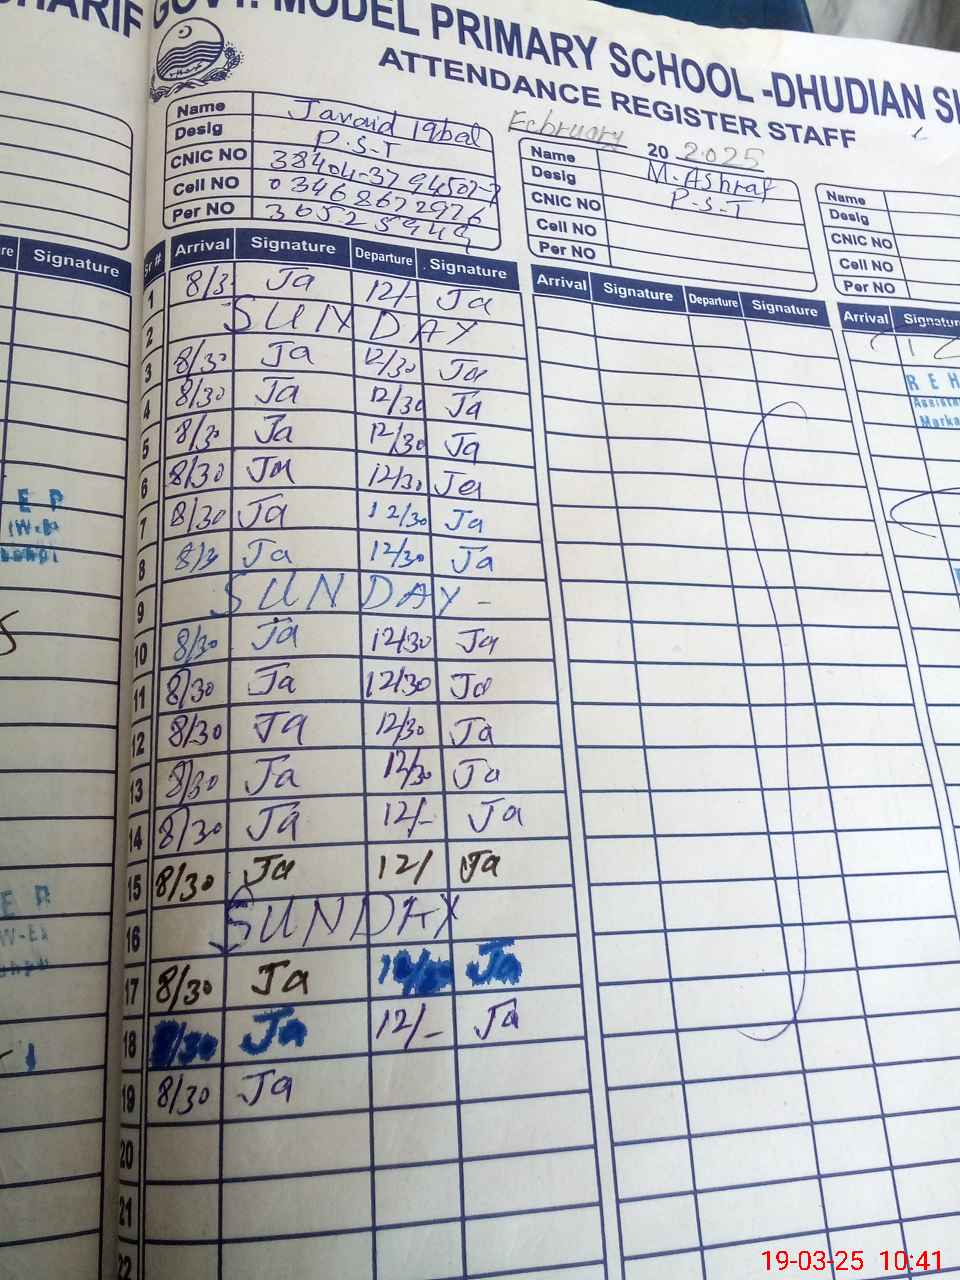 HARIF
GOVT. MODEL PRIMARY SCHOOL -DHUDIAN SH
ATTENDANCE REGISTER STAFF
February 20 2025
Name Javaid Iqbal
Desig P.S.T
CNIC NO 38404-3794507-7
Cell NO 03468672976
Per NO
Name M.Ashraf
Desig P-S-T
CNIC NO
Cell NO
Per NO
Name
Desig
CNIC NO
Cell NO
Per NO
re Signature
Sr # Arrival Signature Departure Signature
Arrival Signature Departure Signature
Arrival Signature
1 8/3 Ja 12/- Ja
2 SUNDAY
3 8/30 Ja 12/30 Ja
4 8/30 Ja 12/30 Ja
5 8/30 Ja 12/30 Ja
6 8/30 Ja 12/30 Ja
7 8/30 Ja 12/30 Ja
8 8/3 Ja 12/30 Ja
9 SUNDAY -
10 8/30 Ja 12/30 Ja
11 8/30 Ja 12/30 Ja
12 8/30 Ja 12/30 Ja
13 8/30 Ja 12/30 Ja
14 8/30 Ja 12/- Ja
15 8/30 Ja 12/ Ja
16 SUNDAY
17 8/30 Ja Ja
18 8/30 Ja 12/- Ja
19 8/30 Ja
20
21
22
REH
Assist
Marka
E P
E R
19-03-25 10:41